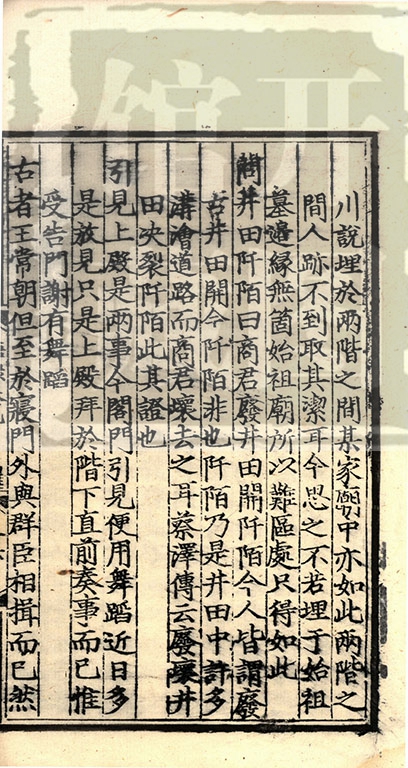 川說埋於兩階之間某家廟中亦如此兩階之
間人跡不到取其潔耳今思之不若埋于始祖
墓邉緣無箇始祖廟所以難區處只得如此
問井田阡陌曰商君廢井田開阡陌今人皆謂廢
古井田開今阡陌非也阡陌乃是井田中許多
溝澮道路而商君壞去之耳蔡澤傳云廢壞井
田决裂阡陌此其證也
引見上殿是兩事今閤門引見便用舞蹈近日多
是放見只是上殿拜於階下直前奏事而已惟
受告門謝有舞蹈
古者王常朝但至於寢門外與群臣相揖而已然